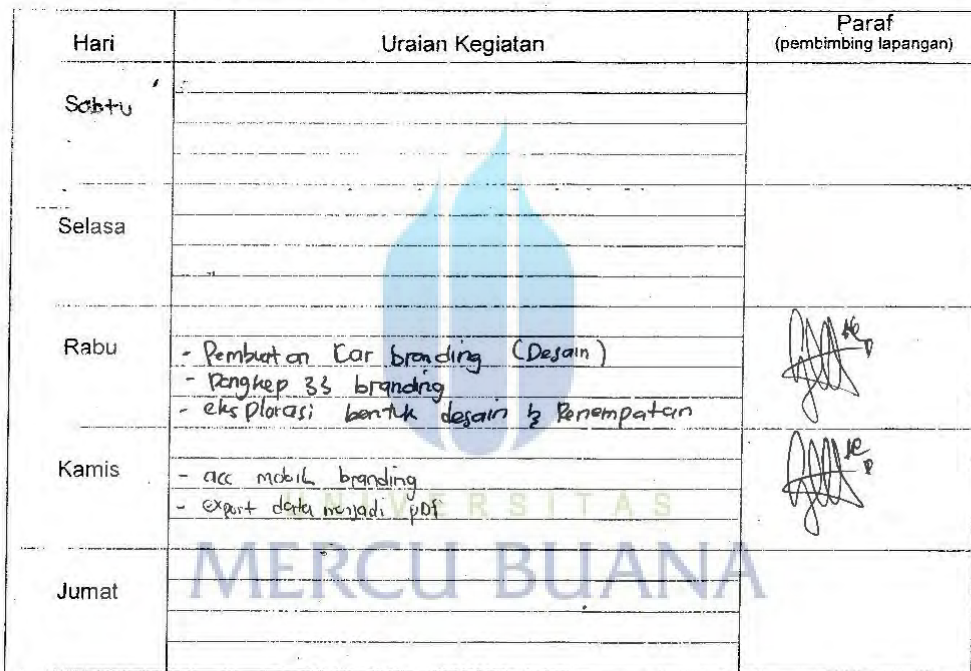 Hari Uraian Kegiatan Paraf
(pembimbing lapangan)
Sabtu
Selasa
Rabu
- Pembuatan Car branding (Desain)
- Pangkep 33 branding
- eksplorasi bentuk desain & Penempatan
Kamis
- acc mobil branding
- export data menjadi pDf
UNIVERSITAS
MERCU BUANA
Jumat